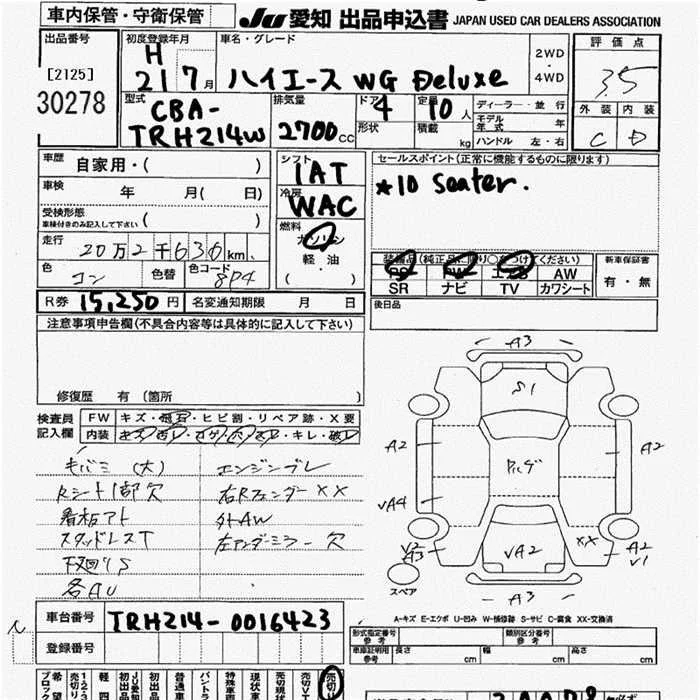 車内保管・守衛保管
JU 愛知 出品申込書 JAPAN USED CAR DEALERS ASSOCIATION
出品番号
[2125]
30278
初度登録年月
H
21 7月
車名・グレード
ハイエース WG Deluxe
2WD
・
4WD
評価点
3.5
外装 内装
C D
型式
CBA-
TRH214W
排気量
2700cc
ドア 4
形状
定員 10人
積載 kg
ディーラー・並行
モデル年式 年
ハンドル 左・右
車歴 自家用・( )
車検 年 月( 日)
受検形態
車検付きのみ記入して下さい ( )
走行 20万2千636km
色 コン 色替 色コード 8P4
シフト
IAT
冷房
WAC
燃料
ガソリン
・
軽・油
( )
セールスポイント(正常に機能するものに限ります)
*10 Seater.
装備品(純正品に限り○をつけてください)
PS PW エアB AW
SR ナビ TV カワシート
新車保証書
有・無
R券 15,250円 名変通知期限 月 日
後日品
注意事項申告欄(不具合内容等は具体的に記入して下さい)
修復歴 有 (箇所 )
検査員
記入欄
FW キズ・飛石・ヒビ割・リペア跡・X要
内装 ・キレ・破レ
エンジンブレ
右Rフェンダー XX
看板アト
外AW
スタッドレスT
左アンダーミラー欠
下廻りS
各AU
A3
S1
A2
A2
VA4
VA2
XX
V2
A3
A2
V1
A3
スペア
A-キズ E-エクボ U-凹み W-補修跡 S-サビ C-腐食 XX-交換済
車台番号 TRH214-0016423
登録番号
型式指定番号
参考
類別区分番号
参考
車庫証明用
参考 長さ cm 幅 cm 高さ cm
売切